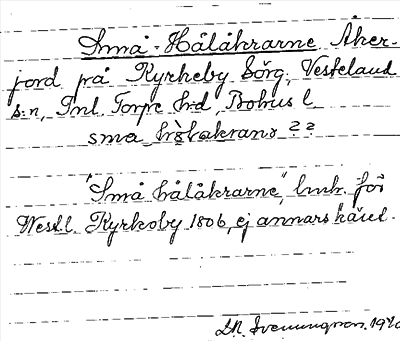 Små-Hålåkrarne Åker-
jord på Kyrkeby Sörg, Vesteland
s:n, Inl. Torpe h:d, Bohus l.
små hålåkrans ??
"Små hålåkrarne", lmh. för
Westl. Kyrkoby 1806, ej annars känd.
D.N. Svenungson. 19